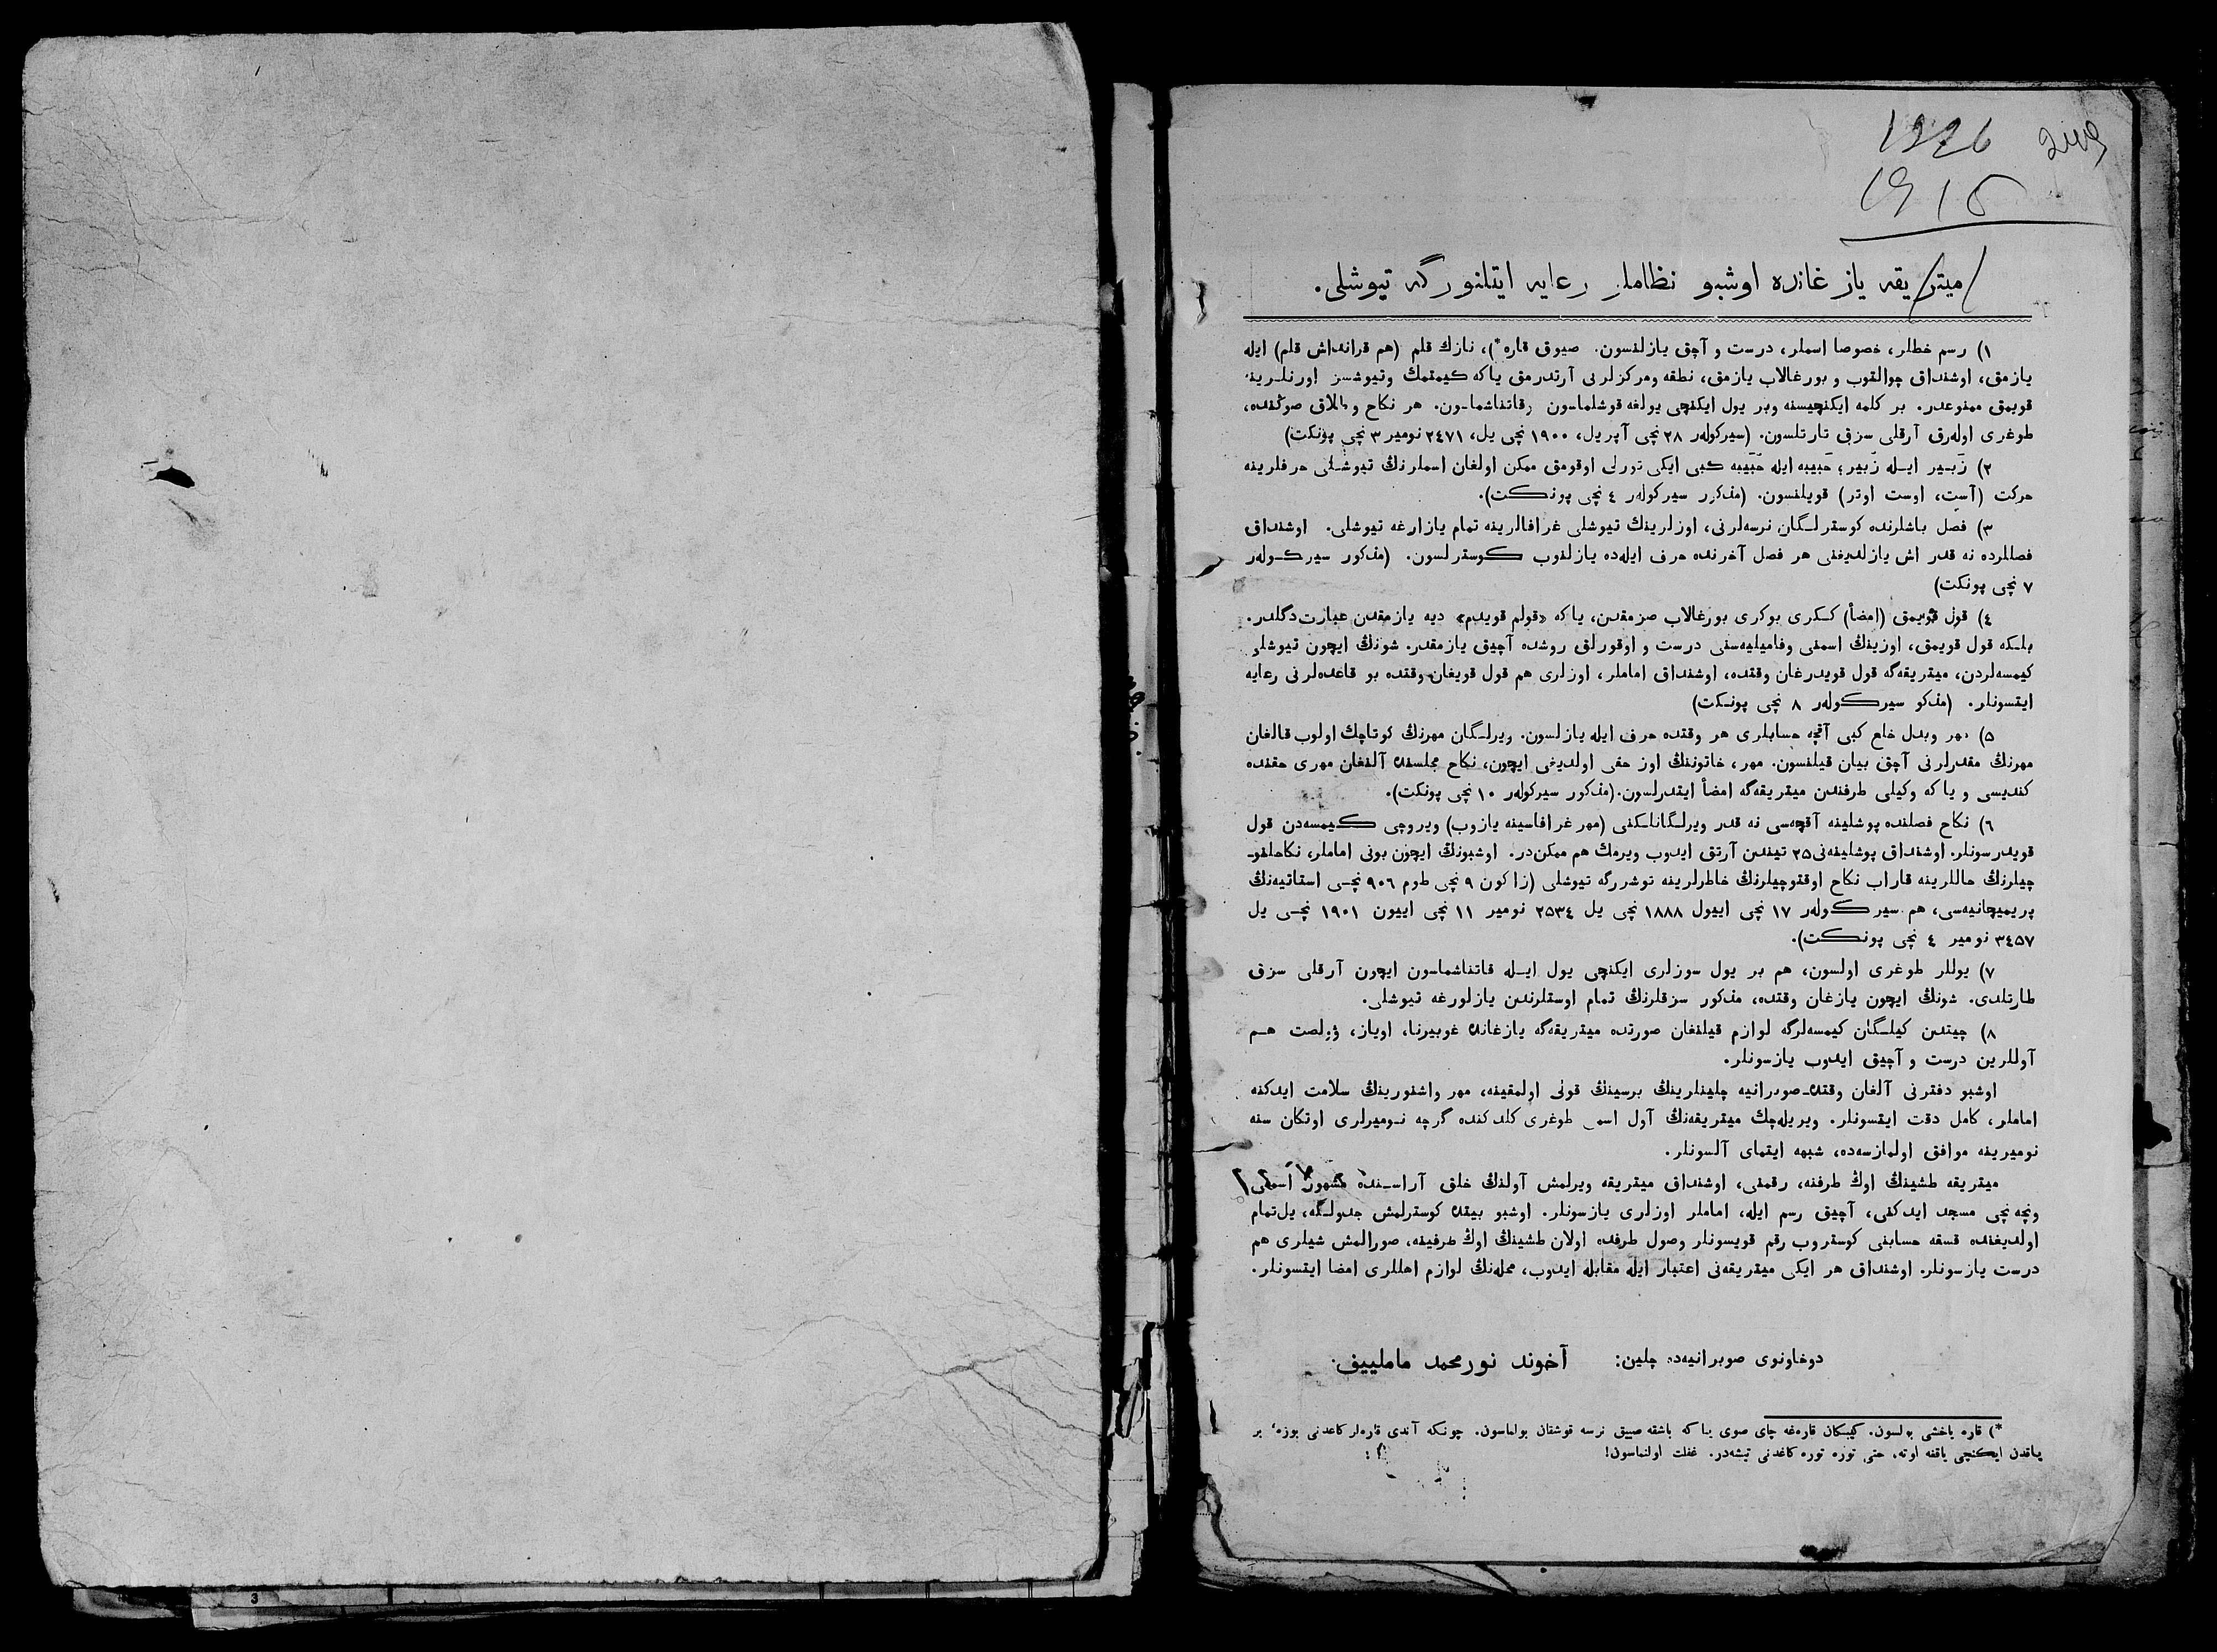 1915
میتریقه یازغانده اوشبو نظاملر رعایه ایتلنورگه تیوشلی.
۱) رسم خطلر، خصوصا اسملر، درست و آچق یازلنسون. صیوق قاره*)، نازك قلم (هم قرانداش قلم) ایله
یازمق، اوشنداق چوالتوب و بورغالاب یازمق، نطقه ومرکزلرنی آرتدرمق یاکه کیمتمك وتیوشسز اورنلرینه
قویمق ممنوعدر. بر کلمه ایکنچیسنه وبر یول ایکنچی یولغه قوشلماسون وقاتناشماسون. هر نکاح و طلاق صوڭنده،
طوغری اوله‌رق آرقلی سزق تارتلسون. (سیرکولەر ۲۸ نچی آپریل، ۱۹۰۰ نچی یل، ۲٤۷۱ نومیر ۳ نچی پونکت)
۲) زَبیر ایله زُبیر؛ حَبیبه ایله حُبَیبه کبی ایکی تورلی اوقومق ممکن اولغان اسملرنڭ تیوشلی حرفلرینه
حرکت (آست، اوست اوتر) قویلنسون. (مذکور سیرکولەر ٤ نچی پونکت).
۳) فصل باشلرنده کوسترلگان نرسه‌لرنی، اوزلرینڭ تیوشلی غرافالرینه تمام یازارغه تیوشلی. اوشنداق
فصللرده نه قدر اش یازلدیغنی هر فصل آخرنده حرف ایله‌ده یازلنوب کوسترلسون. (مذکور سیرکولەر
۷ نچی پونکت)
٤) قول قویمق (امضأ) ککری بوکری بورغالاب صزمقدن، یاکه «قولم قویدم» دیه یازمقدن عبارت دگلدر.
بلکه قول قویمق، اوزینڭ اسمنی وفامیلیه‌سنی درست و اوقورلق روشده آچیق یازمقدر. شونڭ ایچون تیوشلی
کیمسه‌لردن، میتریقه‌گه قول قویدرغان وقتده، اوشنداق اماملر، اوزلری هم قول قویغان وقتده بو قاعده‌لرنی رعایه
ایتسونلر. (مذکو سیرکولەر ۸ نچی پونکت)
۵) مهر وبدل خلع کبی آقچه حسابلری هر وقتده حرف ایله یازلسون. ویرلگان مهرنڭ کوتاچك اولوب قالغان
مهرنڭ مقدرلرنی آچق بیان قیلنسون. مهر، خاتوننڭ اوز حقی اولدیغی ایچون، نکاح مجلسنده آلنغان مهری حقنده
کندیسی و یاکه وکیلی طرفندن میتریقه‌گه امضأ ایتدرلسون. (مذکور سیرکولەر ۱۰ نچی پونکت).
٦) نکاح فصلنده پوشلینه آقچه‌سی نه قدر ویرلگانلکنی (مهر غرافاسینه یازوب) ویروچی کیمسه‌دن قول
قویدرسونلر. اوشنداق پوشلینه‌نی ۲۵ تیندن آرتق ایدوب ویرمك هم ممکن‌در. اوشبونڭ ایچون بونی اماملر، نکاحلنو-
چیلرنڭ حاللرینه قاراب نکاح اوقتوچیلرنڭ خاطرلرینه توشررگه تیوشلی (زاکون ۹ نچی طوم ۹۰٦ نچی استاتیه‌نڭ
پریمیچانیه‌سی، هم سیرکولەر ۱۷ نچی اییول ۱۸۸۸ نچی یل ۲۵۳٤ نومیر ۱۱ نچی اییون ۱۹۰۱ نچی یل
۳٤۵۷ نومیر ٤ نچی پونکت).
۷) یوللر طوغری اولسون، هم بر یول سوزلری ایکنچی یول ایله قاتناشماسون ایچون آرقلی سزق
طارتلدی. شونڭ ایچون یازغان وقتده، مذکور سزقلرنڭ تمام اوستلرندن یازلورغه تیوشلی.
۸) چیتدن کیلگان کیمسه‌لرگه لوازم قیلنغان صورتده میتریقه‌گه یازغانده غوبیرنا، اویاز، ۋولصت هم
آوللرین درست و آچیق ایدوب یازسونلر.
اوشبو دفترنی آلغان وقتده صوبرانیه چلینلرینڭ برسینڭ قولی اولمقینه، مهر واشنورینڭ سلامت ایدکنه
اماملر، کامل دقت ایتسونلر. ویریله‌چك میتریقه‌نڭ آول اسمی طوغری کلدکنده گرچه نومیرلری اوتکان سنه
نومیرینه موافق اولمازسه‌ده، شبهه ایتمای آلسونلر.
میتریقه طشینڭ اوڭ طرفنه، رقمنی، اوشنداق میتریقه ویرلمش آولنڭ خلق آراسنده مشهور اسمنی
ونچه نچی مسجد ایدکنی، آچیق رسم ایله، اماملر اوزلری یازسونلر. اوشبو بیتده کوسترلمش جدولگه، یل تمام
اولدیغنده قسقه حسابنی کوستروب رقم قویسونلر وصول طرفده اولان طشینڭ اوڭ طرفینه، صورالمش شیلری هم
درست یازسونلر. اوشنداق هر ایکی میتریقه‌نی اعتبار ایله مقابله ایدوب، محله‌نڭ لوازم اهللری امضا ایتسونلر.
دوخاونوی صوبرانیه‌ده چلین: آخوند نورمحمد ماملییف
*) قاره یاخشی بولسون. کیبکان قاره‌غه چای صوی یاکه باشقه صیق نرسه قوشقان بولماسون. چونکه آندی قاره‌لر کاغدنی بوزه، بر
یاقدن ایکنچی یاقنه اوته، حتی توره توره کاغدنی تیشه‌در. غفلت اولنماسون!
3